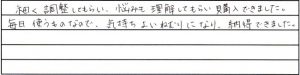 細く調整してもらい、悩みも理解してもらい購入できました。
毎日使うものなので、気持ちよいねむりになり、納得できました。